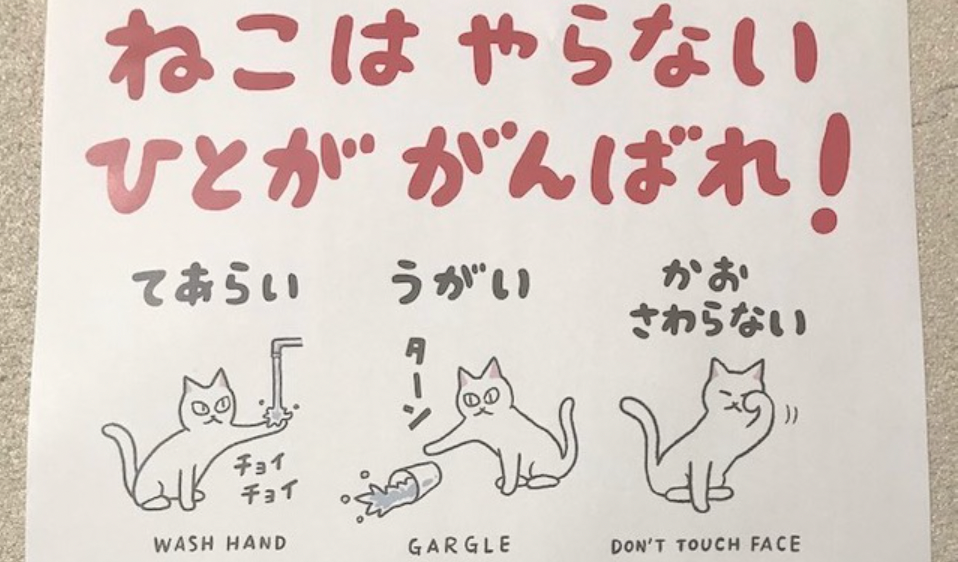 ねこは やらない
ひとが がんばれ!
てあらい
チョイ
チョイ
WASH HAND
うがい
ターン
GARGLE
かお
さわらない
DON'T TOUCH FACE